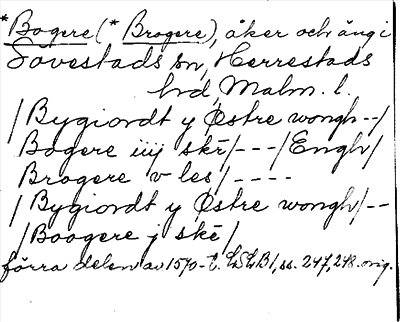 *Bogere (* Brogere), åker och äng i
Sövestads sn, Herrestads
hd, Malm. l.
/Bygiordt y Østre wongh--/
Bogere iiij skr̄/---/Engh/
Brogere v les/----
/Bygiordt y Østre wongh/--
/Boogere j skē/
förra delen av 1570-t. LSLB 1, ss. 247, 248. orig.